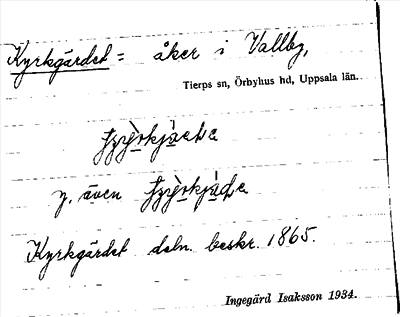 Kyrkgärdet = åker i Vallby,
Tierps sn, Örbyhus hd, Uppsala län.
y. även
Kyrkgärdet deln. beskr. 1865.
Ingegärd Isaksson 1934.